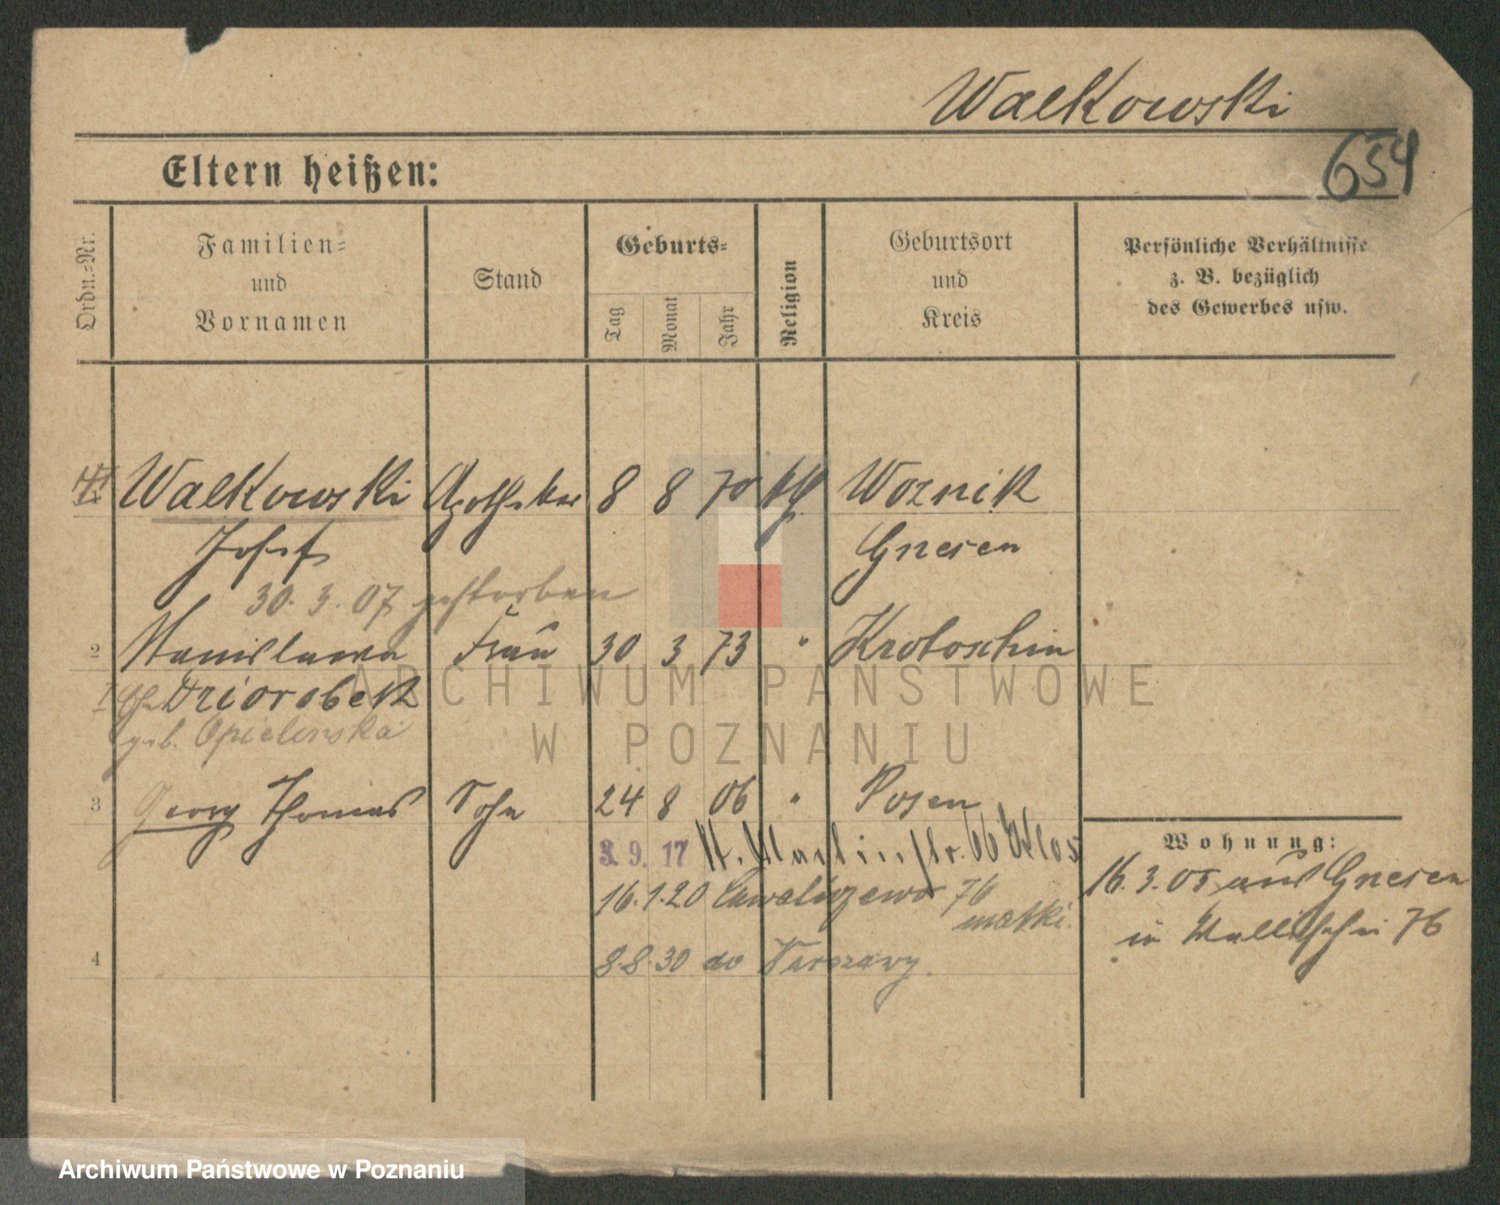 Walkowski
654
Eltern heißen:
Ordn.=Nr.
Familien=
und
Vornamen
Stand
Geburts=
Tag
Monat
Jahr
Religion
Geburtsort
und
Kreis
Persönliche Verhältnisse
z. B. bezüglich
des Gewerbes usw.
Walkowski Apotheker 8 8 70 Woznik
Josef Gnesen
30. 3. 07 gestorben
2 Stanislawa Frau 30 3 73 " Krotoschin
geb. Opielinska
3 Georg Thomas Sohn 24 8 06 " Posen
Wohnung:
3. 9. 17 St. Martinstr. 66
16. 3. 05 aus Gnesen
16. 1. 20 76
matki.
in Wallischei 76
4 8.8.30 do Warszawy.
ARCHIWUM PAŃSTWOWE
W POZNANIU
Archiwum Państwowe w Poznaniu